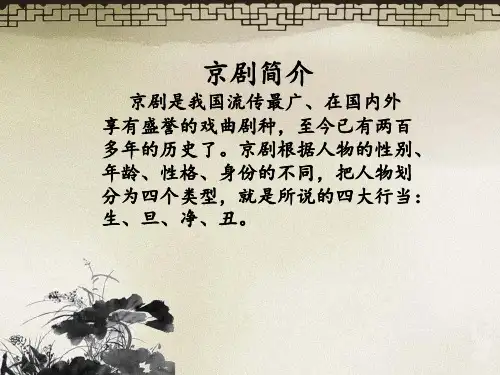 京剧简介
京剧是我国流传最广、在国内外
享有盛誉的戏曲剧种，至今已有两百
多年的历史了。京剧根据人物的性别、
年龄、性格、身份的不同，把人物划
分为四个类型，就是所说的四大行当：
生、旦、净、丑。